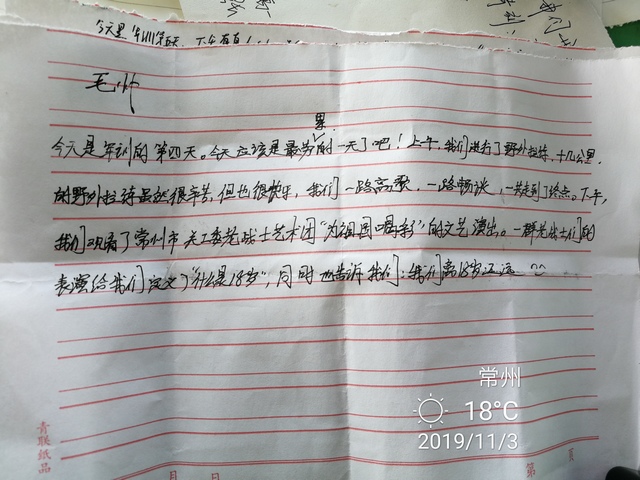 今天是军训第四天，下午有
毛帅
累
今天是军训的第四天。今天应该是最劳的一天了吧！上午，我们进行了野外拉练，十几公里
的野外拉练虽然很辛苦，但也很快乐，我们一路高歌，一路畅谈，一齐走到了终点。下午，
我们观看了常州市关工委老战士艺术团“为祖国喝彩”的文艺演出。一群老战士们的
表演给我们定义了“什么是18岁”，同时也告诉我们：我们离18岁还远
常州
18°C
2019/11/3
青联纸品
月 日
第 页